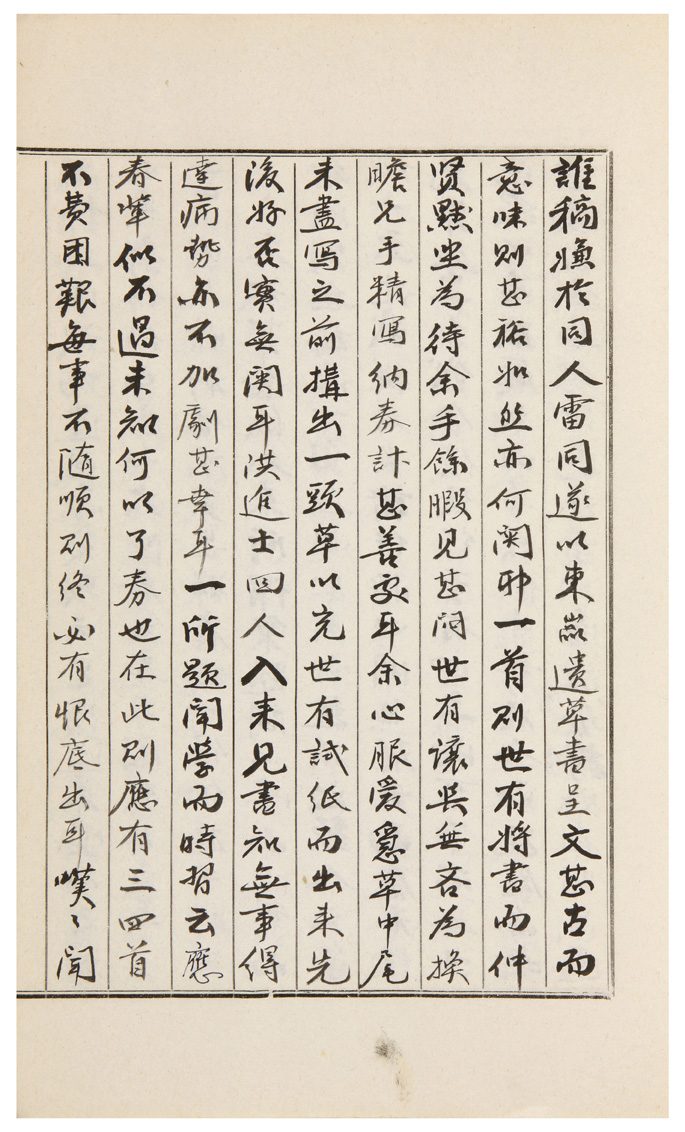 誰稿嫌於同人雷同遂以東巖遺草書呈文甚古而
意味則甚裕如然亦何関耶一首則世有將書而仲
賢黙坐為待余手餘暇見甚悶世有讓与無吝為換
瞻兄手精寫納券計甚善家耳余心服爰意草中尾
未盡寫之前搆出一題草以充世有試紙而出来先
後好否實無関耳洪進士四人入来見書知無事得
達病勢亦不加劇甚幸耳一所題聞學而時習云應
春輩似不過未知何以了券也在此則應有三四首
不費困艱每事不随順則終必有恨底出耳嘆〻聞